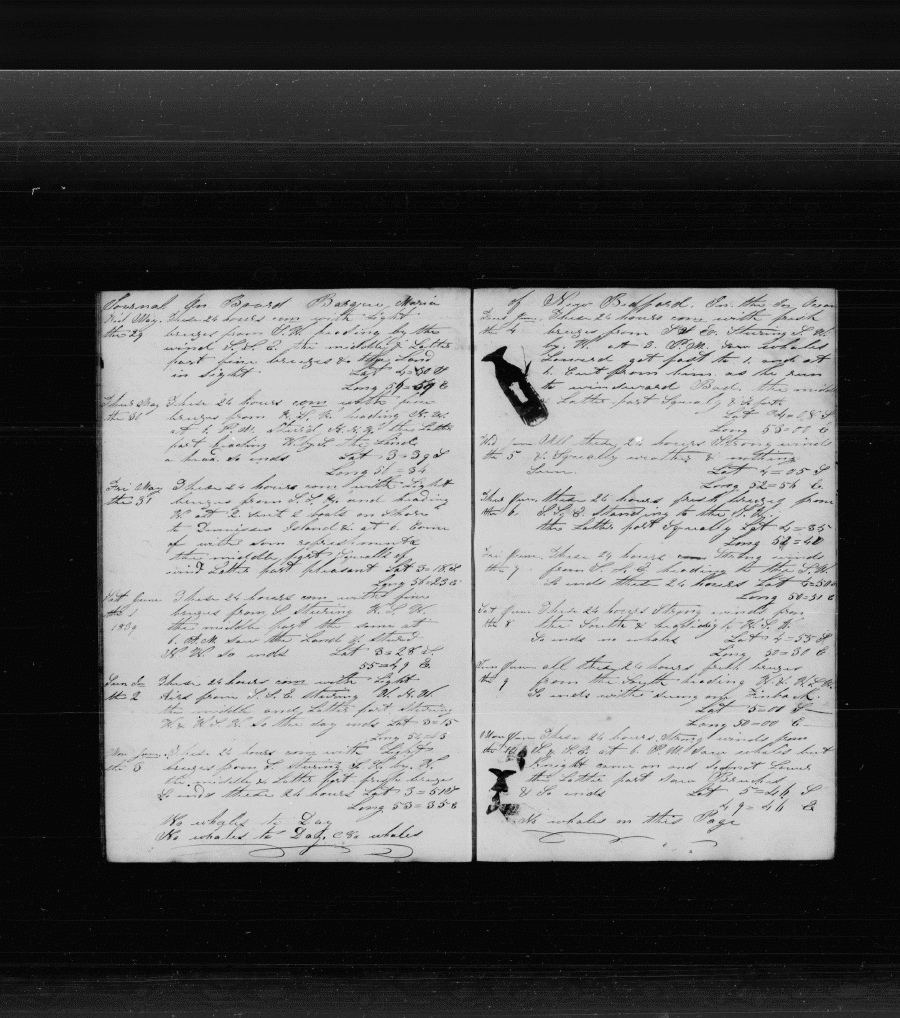 Journal On Board Barque Maria
Wed May These 24 hours com with light
the 29 breezes from S.W. heading by the
wind S. & E. the middle & Latter
part fine breezes & the Land
in sight Lat 4=30 S
Long 59=59 E
Thurs May These 24 hours com with fine
the 30 breezes from heading
at 2 P.M. the Latter
part heading the Land
a head So ends Lat 3=39 S
Long 57=34
Fri May These 24 hours com with light
the 31 breezes from and heading
W at 2 sent 2 boats on Shore
to Island & at 6 came
of with som refreshments
the middle part Squalls of
wind Latter part pleasant Lat 3=18 S
Long 56=23 E
Sat June These 24 hours com with fine
the 1 breezes from S Steering W. S. W.
1839 the middle part the same at
6 A.M. saw the Land & steird
N W. So ends Lat 3=28 S
55=49 E.
Sun Do These 24 hours com with Light
the 2 Airs from S. S. E Steering W. N. W
the middle and Latter part Steering
W & W S W So the day ends Lat 3=15
Long 54=43
Mon June These 24 hours com with Light
the 3 breezes from S Steering S. W. by W.
the middle & Latter part fresh breezes
So ends these 24 hours Lat 3=51 S
Long 53=35 E
No whales to Day
No whales to Day, & No whales
of New Bedford. In the Ocean
Tues June These 24 hours com with fresh
the 4 breezes from Steering S. W.
by W. at 3. P.M. saw whales
Lowerd got fast to 1. and at
6. Cut from him as he run
to windward Bad. the middle
& Latter part Squaly
Lat 4=28 S
Long 53=00 E
Wed June All these 24 hours Strong winds
the 5 & Squally weather & nothing
Seen. Lat 4=05 S
Long 52=56 E
Thurs June these 24 hours fresh breezes from
the 6. S. S. E. Standing to the S. W.
the Latter part Squally Lat 4=35
Long 52=40
Fri June These 24 hours Strong winds
the 7 from S. S. E heading to the S. W.
So ends these 24 hours Lat 4=50
Long 50=51 E
Sat June These 24 hours Strong winds from
the 8 the South & heading to W. S. W.
So ends no whales Lat 4=55 S
Long 50=30 E
Sun June all these 24 hours fresh breezes
the 9 from the South heading W. & W. S. W.
So ends with seing one Finback.
Lat 5=01 S
Long 50=00 E
Mon June These 24 hours Strong winds from
the 10 S. & S. E. at 6 P M saw whales but
Knight came on and did not Lower
the Latter part saw
& So ends Lat 5=46 S
49=46 E
No whales on this Page